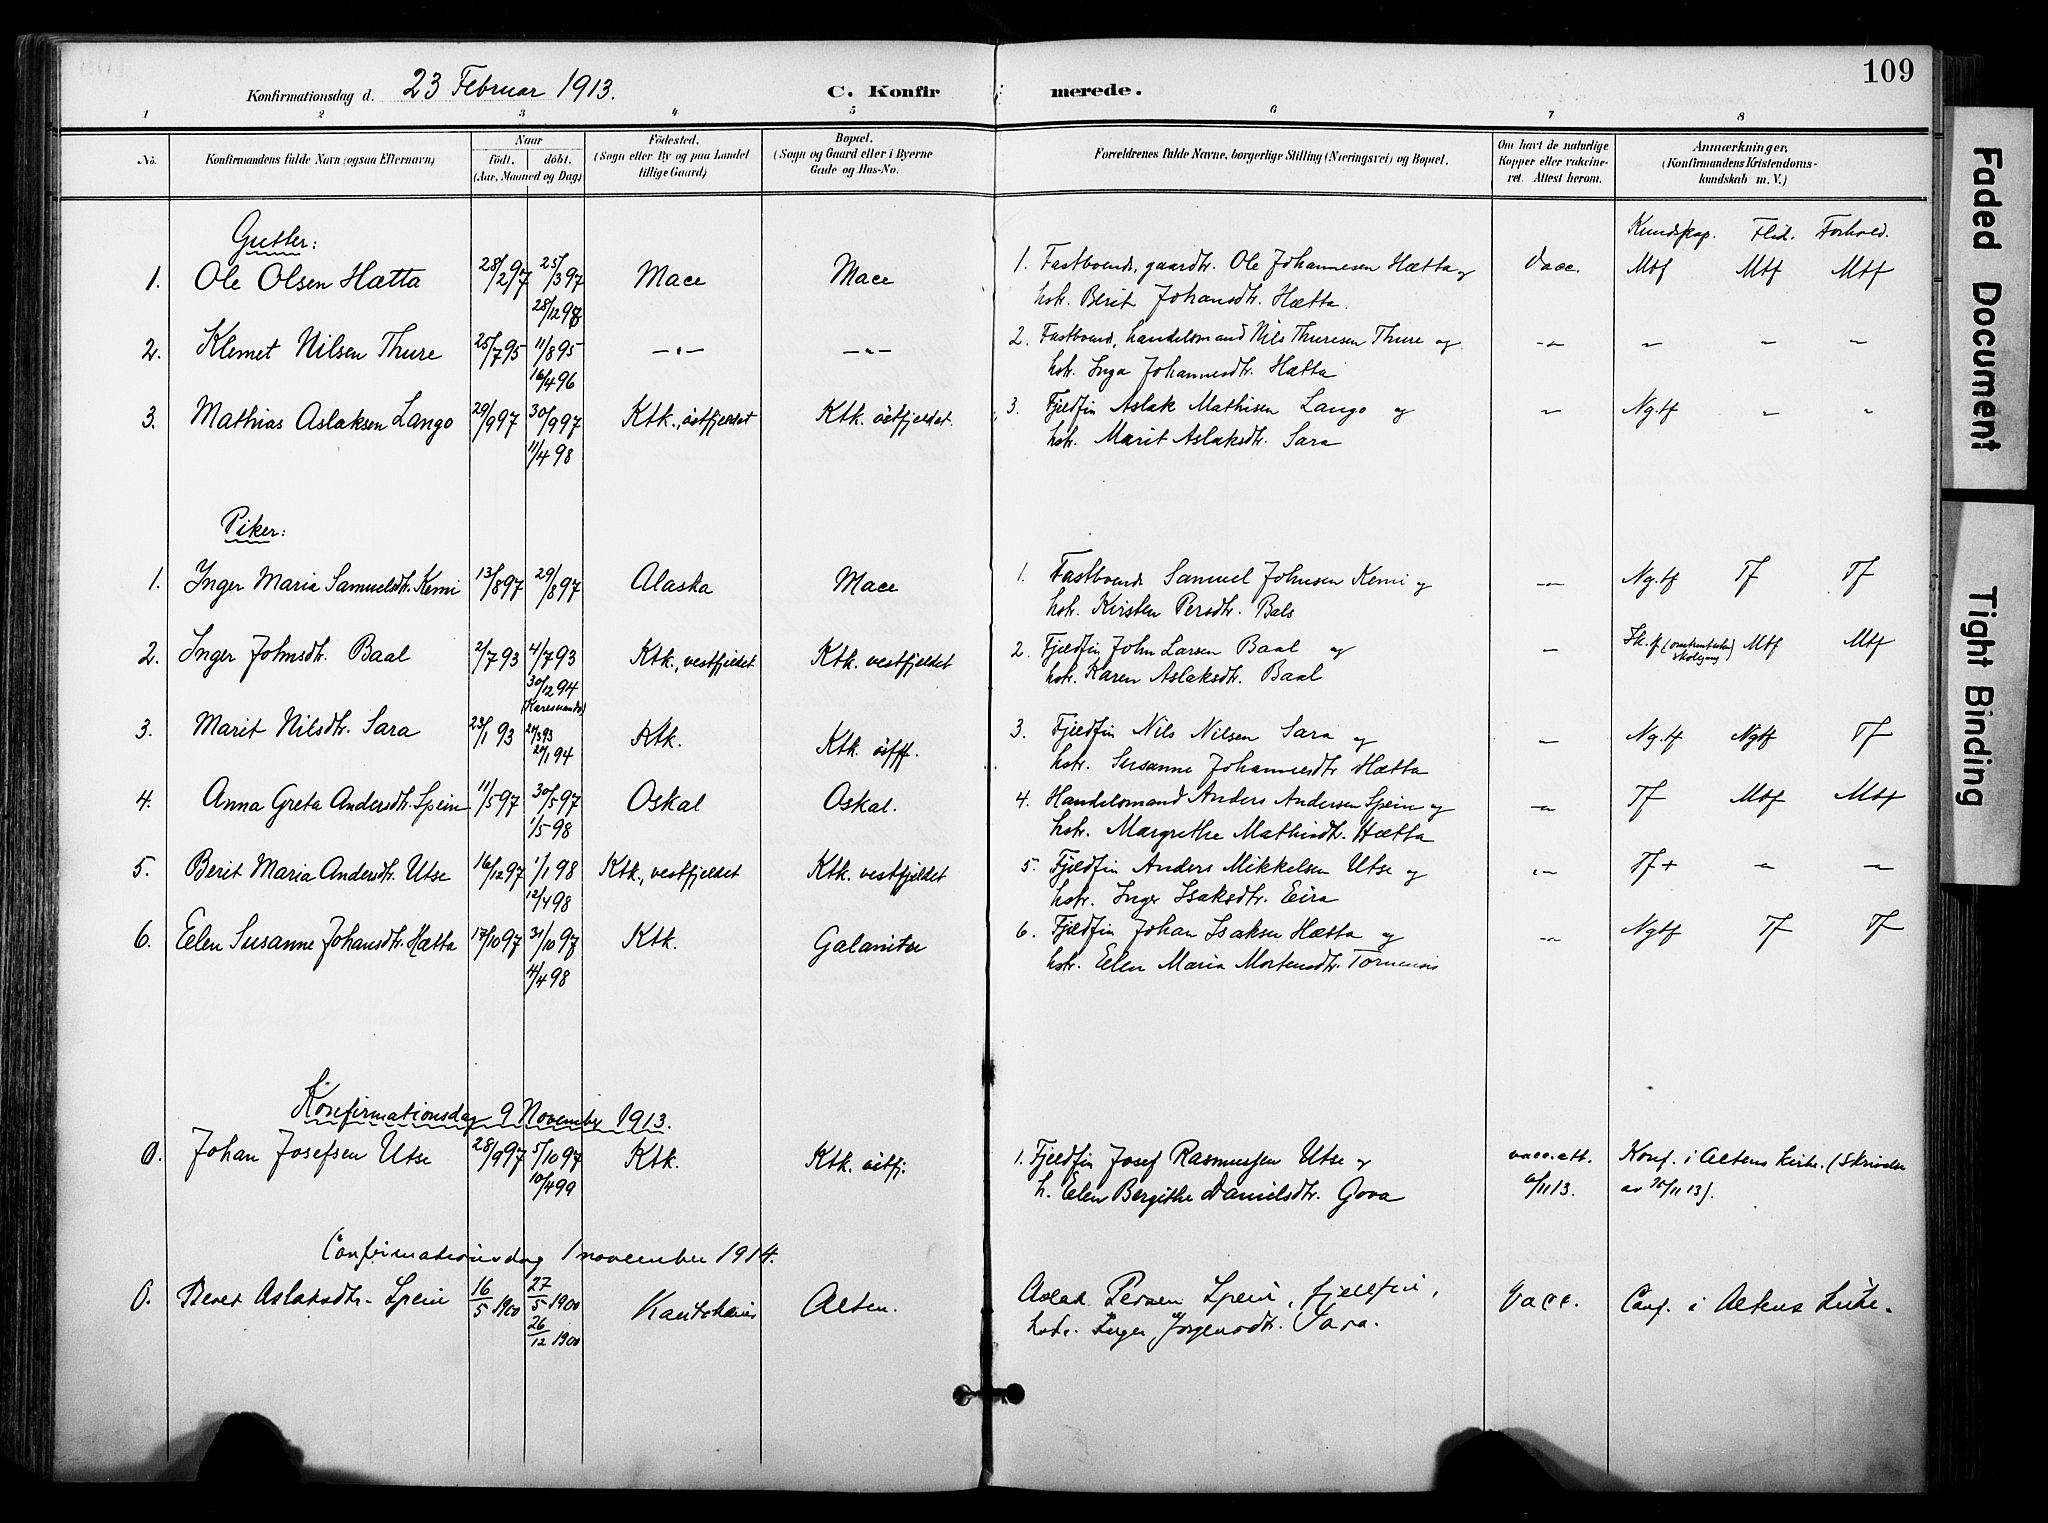 109
Konfirmationsdag d. 23 Februar 1913. C. Konfir merede.
1 2 3 4 5 6 7 8
No. Konfirmandens fulde Navn (ogsaa Efternavn) Naar født. døbt. (Aar, Maaned og Dag) Fødested. (Sogn eller By og paa Landet tillige Gaard) Bopæl. (Sogn og Gaard eller i Byerne Gade og Hus-No. Forældrenes fulde Navne, borgerlige Stilling (Næringsvei) og Bopæl. Om havt de naturlige Kopper eller vakcineret. Attest herom. Anmærkninger, (Konfirmandens Kristendomskundskab m. V.)
Gutter: Kundskap. Flid. Forhold.
1. Ole Olsen Hætta 28/2 97 25/3 97 Mace Mace 1. Fastboende, gaardbr. Ole Johannesen Hætta og Vacc. Mtf Mtf Mtf
28/12 98 hstr. Berit Johansdtr. Hætta.
2. Klemet Nilsen Thure 25/7 95 11/8 95 —"— —"— 2. Fastboend, handelsmand Nils Thuresen Thure og —"— " " "
16/4 96 hstr. Inga Johannesdtr. Hætta
3. Mathias Aslaksen Lango 29/9 97 30/9 97 Ktk., östfjeldet Ktk. östfjeldet. 3. Fjeldfin Aslak Mathisen Lango og " Ng.tf " "
11/4 98 hstr. Marit Aslaksdtr. Sara
Piker:
1. Inger Maria Samuelsdtr. Kemi 13/8 97 29/8 97 Alaska Mace 1. Fastboende Samuel Johnsen Kemi og —"— Ng.tf Tf Tf
hstr. Kirsten Persdtr. Bals
2. Inger Johnsdtr. Baal 2/7 93 4/7 93 Ktk., vestfjeldet Ktk. vestfjeldet 2. Fjeldfin John Larsen Baal og " Mtf Mtf
30/12 94 hstr. Karen Aslaksdtr. Baal
(Karesuando)
3. Marit Nilsdtr. Sara 23/1 93 Ktk. Ktk. östff. 3. Fjeldfin Nils Nilsen Sara og " Ng.tf Ngtf Tf
20/1 94 hstr. Susanne Johannesdtr Hætta
4. Anna Greta Andersdtr. Spein 11/5 97 30/5 97 Oskal Oskal. 4. Handelsmand Anders Andersen Spein og —"— Tf Mtf Mtf
1/5 98 hstr. Margrethe Mathisdtr. Hætta
5. Berit Maria Andersdtr. Utse 16/12 97 1/1 98 Ktk., vestfjeldet Ktk. vestfjeldet 5. Fjeldfin Anders Mikkelsen Utse og —"— Tf+ " "
12/4 98 hstr. Inger Isaksdtr. Eira
6. Eelen Susanne Johansdtr. Hætta 17/10 97 31/10 97 Ktk. Galanitse 6. Fjeldfin Johan Isaksen Hætta og —"— Ngtf Tf Tf
11/4 98 hstr. Eelen Maria Mortensdtr. Tornensis
Konfirmationsdag 9 November 1913.
0. Johan Josefsen Utse 28/9 97 5/10 97 Ktk. Ktk. östfj. 1. Fjeldfin Josef Rasmussen Utse og vacc. att. Konf. i Altens kirke. (Skrivelse
10/4 99 h. Eelen Bergithe Danielsdtr. Gova 6/11 13. av 20/11 13).
Confirmationsdag 1 november 1914.
0. Beret Aslaksdtr. Spein 16/5 1900 27/5 1900 Kautokeino Alten. Aslak Persen Spein, fjellfin, Vacc. Conf. i Altens kirke.
26/12 1900 hstr. Inger Jørgensdtr. Sara.
Faded Document
Tight Binding